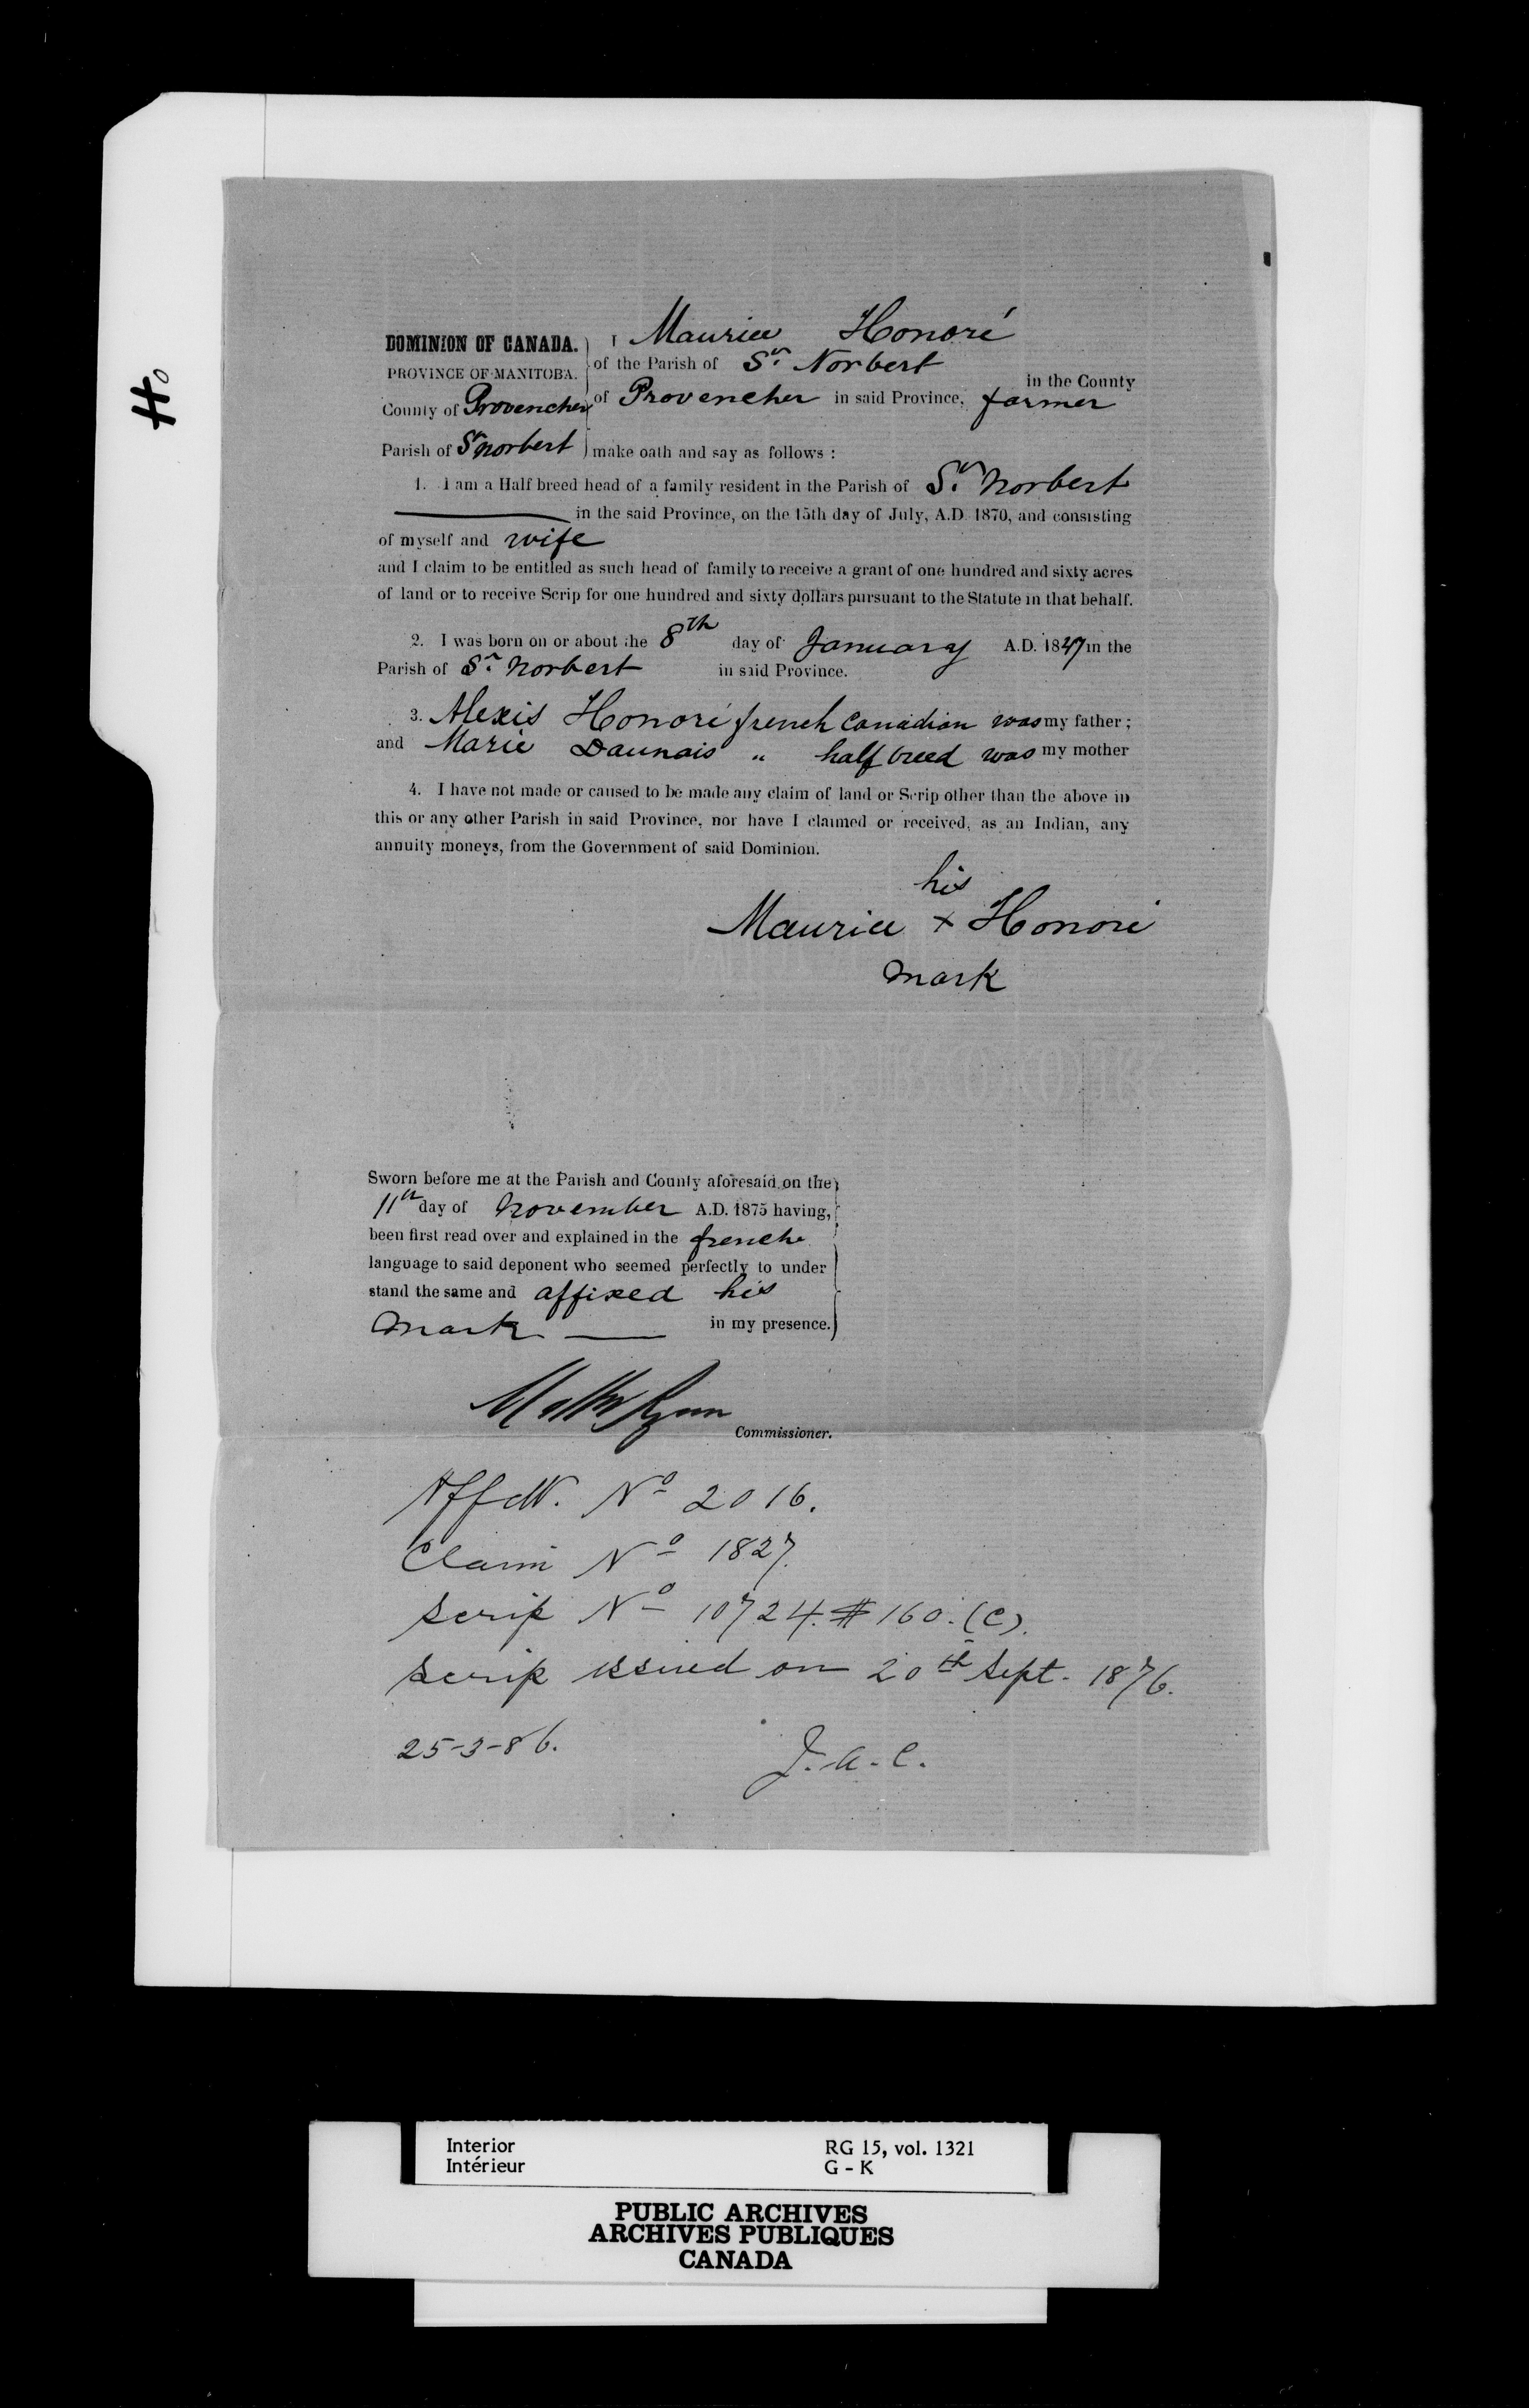 Ho
DOMINION OF CANADA.
PROVINCE OF MANITOBA.
County of Provencher
Parish of St. Norbert
I Maurice Honoré
of the Parish of St. Norbert
in the County
of Provencher in said Province, farmer
make oath and say as follows :
1. I am a Half breed head of a family resident in the Parish of St. Norbert
in the said Province, on the 15th day of July, A.D. 1870, and consisting
of myself and wife
and I claim to be entitled as such head of family to receive a grant of one hundred and sixty acres
of land or to receive Scrip for one hundred and sixty dollars pursuant to the Statute in that behalf.
2. I was born on or about the 8th day of January A.D. 1847 in the
Parish of St. Norbert in said Province.
3. Alexis Honoré french Canadian was my father ;
and Marie Daunais " half breed was my mother
4. I have not made or caused to be made any claim of land or Scrip other than the above in
this or any other Parish in said Province, nor have I claimed or received, as an Indian, any
annuity moneys, from the Government of said Dominion.
his
Maurice x Honoré
mark
Sworn before me at the Parish and County aforesaid on the
11th day of November A.D. 1875 having,
been first read over and explained in the french
language to said deponent who seemed perfectly to under
stand the same and affixed his
mark in my presence.
Matthw Ryan
Commissioner.
Affdt. No 2016.
Claim No 1827.
Scrip No 10724. $160. (C).
Scrip issued on 20th Sept. 1876.
25-3-86.
J.A.C.
Interior
Intérieur
RG 15, vol. 1321
G - K
PUBLIC ARCHIVES
ARCHIVES PUBLIQUES
CANADA